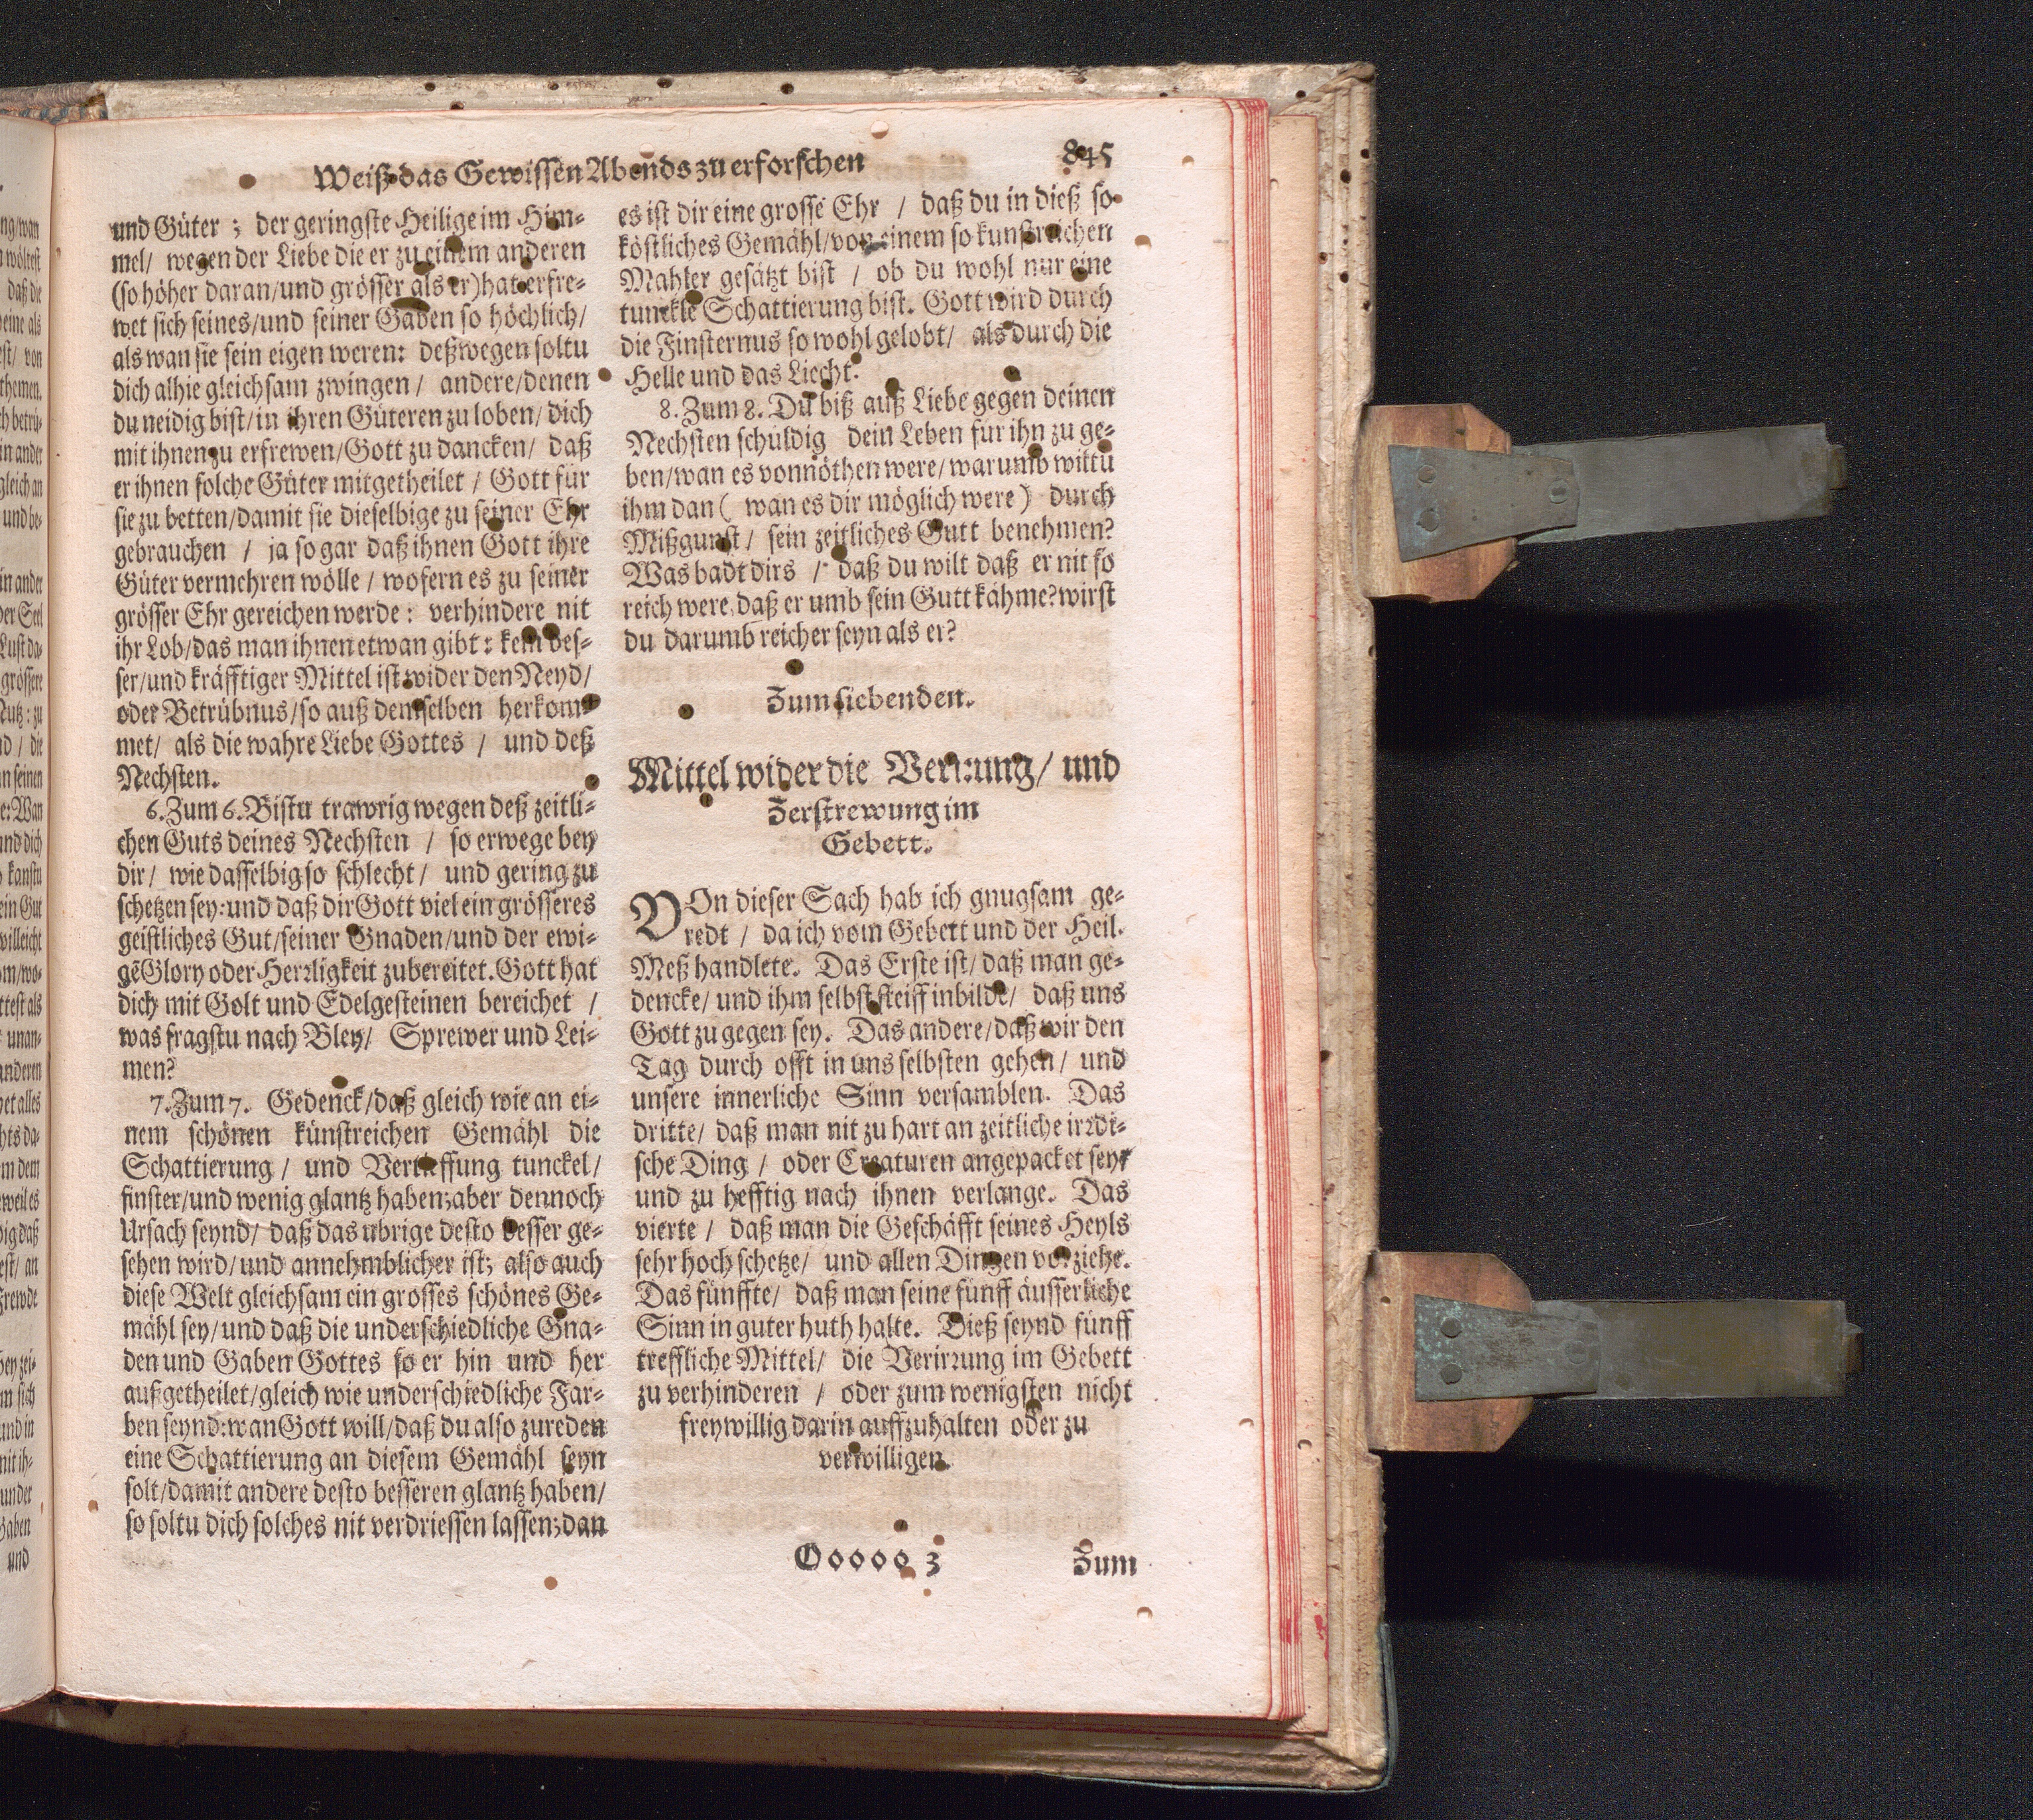 Weiß das Gewissen Abends zu erforschen
845
und Güter ; der geringste Heilige im Him-
mel/ wegen der Liebe die er zu einem anderen
(so höher daran/und grösser als er) hat erfre-
wet sich seines/und seiner Gaden so höchlich/
als wan sie sein eigen weren: deßwegen soltu
dich alhie gleichsam zwingen/ andere/denen
du neidig bist/in ihren Güteren zu loben/dich
mit ihnen zu erfrewen/Gott zu dancken/ daß
er ihnen solche Güter mitgetheilet / Gott für
sie zu betten/damit sie dieselbige zu seiner Ehr
gebrauchen / ja so gar daß ihnen Gott ihre
Güter vermehren wölle / wofern es zu seiner
grösser Ehr gereichen werde: verhindere nit
ihr Lob/das man ihnen etwan gibt: kein bes-
ser/und kräfftiger Mittel ist wider den Neyd/
oder Betrübnus/so auß demselben herkom-
met/ als die wahre Liebe Gottes / und deß
Nechsten.
6. Zum 6. Bistu trawrig wegen deß zeitli-
chen Guts deines Nechsten / so erwege bey
dir/ wie dasselbig so schlecht/ und gering zu
schetzen sey: und daß dir Gott viel ein grösseres
geistliches Gut/seiner Gnaden/und der ewi-
gē Glory oder Herrligkeit zubereitet. Gott hat
dich mit Golt und Edelgesteinen bereichet /
was fragstu nach Bley/ Sprewer und Lei-
men?
7. Zum 7. Gedenck/daß gleich wie an ei-
nem schönen künstreichen Gemähl die
Schattierung / und Vertieffung tunckel/
finster/und wenig glantz haben; aber dennoch
Ursach seynd/ daß das ubrige desto besser ge-
sehen wird/und annehmblicher ist; also auch
diese Welt gleichsam ein grosses schönes Ge-
mähl sey/und daß die underschiedliche Gna-
den und Gaben Gottes so er hin und her
außgetheilet/gleich wie underschiedliche Far-
ben seynd: wan Gott will/daß du also zureden
eine Schattierung an diesem Gemähl seyn
solt/damit andere desto besseren glantz haben/
so soltu dich solches nit verdriessen lassen; dan
es ist dir eine grosse Ehr / daß du in dieß so
köstliches Gemähl/von einem so kunstreichen
Mahler gesätzt bist / ob du wohl nur eine
tunckle Schattierung bist. Gott wird durch
die Finsternus so wohl gelobt/ als durch die
Helle und das Liecht.
8. Zum 8. Du biß auß Liebe gegen deinen
Nechsten schuldig dein Leben für ihn zu ge-
ben/wan es vonnöthen were/warumb wiltu
ihm dan ( wan es dir möglich were) durch
Mißgunst / sein zeitliches Gutt benehmen?
Was badt dirs / daß du wilt daß er nit so
reich were, daß er umb sein Gutt kähme? wirst
du darumb reicher seyn als er?
Zum siebenden.
Mittel wider die Verirrung/ und
Zerstrewung im
Gebett.
VOn dieser Sach hab ich gnugsam ge-
redt / da ich vom Gebett und der Heil.
Meß handlete. Das Erste ist/ daß man ge-
dencke/ und ihm selbst steiff inbilde/ daß uns
Gott zu gegen sey. Das andere/daß wir den
Tag durch offt in uns selbsten gehen/ und
unsere innerliche Sinn versamblen. Das
dritte/ daß man nit zu hart an zeitliche irrdi-
sche Ding / oder Creaturen angepacket sey
und zu hefftig nach ihnen verlange. Das
vierte / daß man die Geschäfft seines Heyls
sehr hoch schetze/ und allen Dingen vorziehe.
Das fünffte/ daß man seine fünff äusserliche
Sinn in guter huth halte. Dieß seynd fünff
treffliche Mittel/ die Verirrung im Gebett
zu verhinderen / oder zum wenigsten nicht
freywillig darin auffzuhalten oder zu
verwilligen.
Ooooo 3
Zum